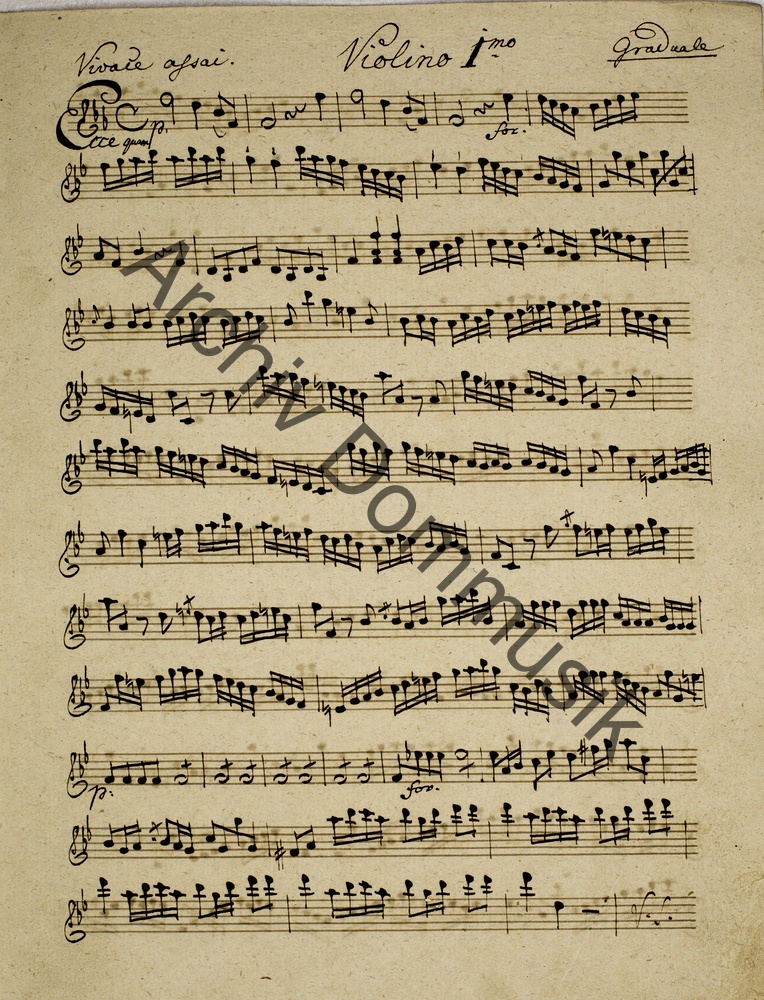 Vivace assai. Violino 1mo Graduale
Ecce quam p. for.
p: for.
V. S.
Archiv Dommusik